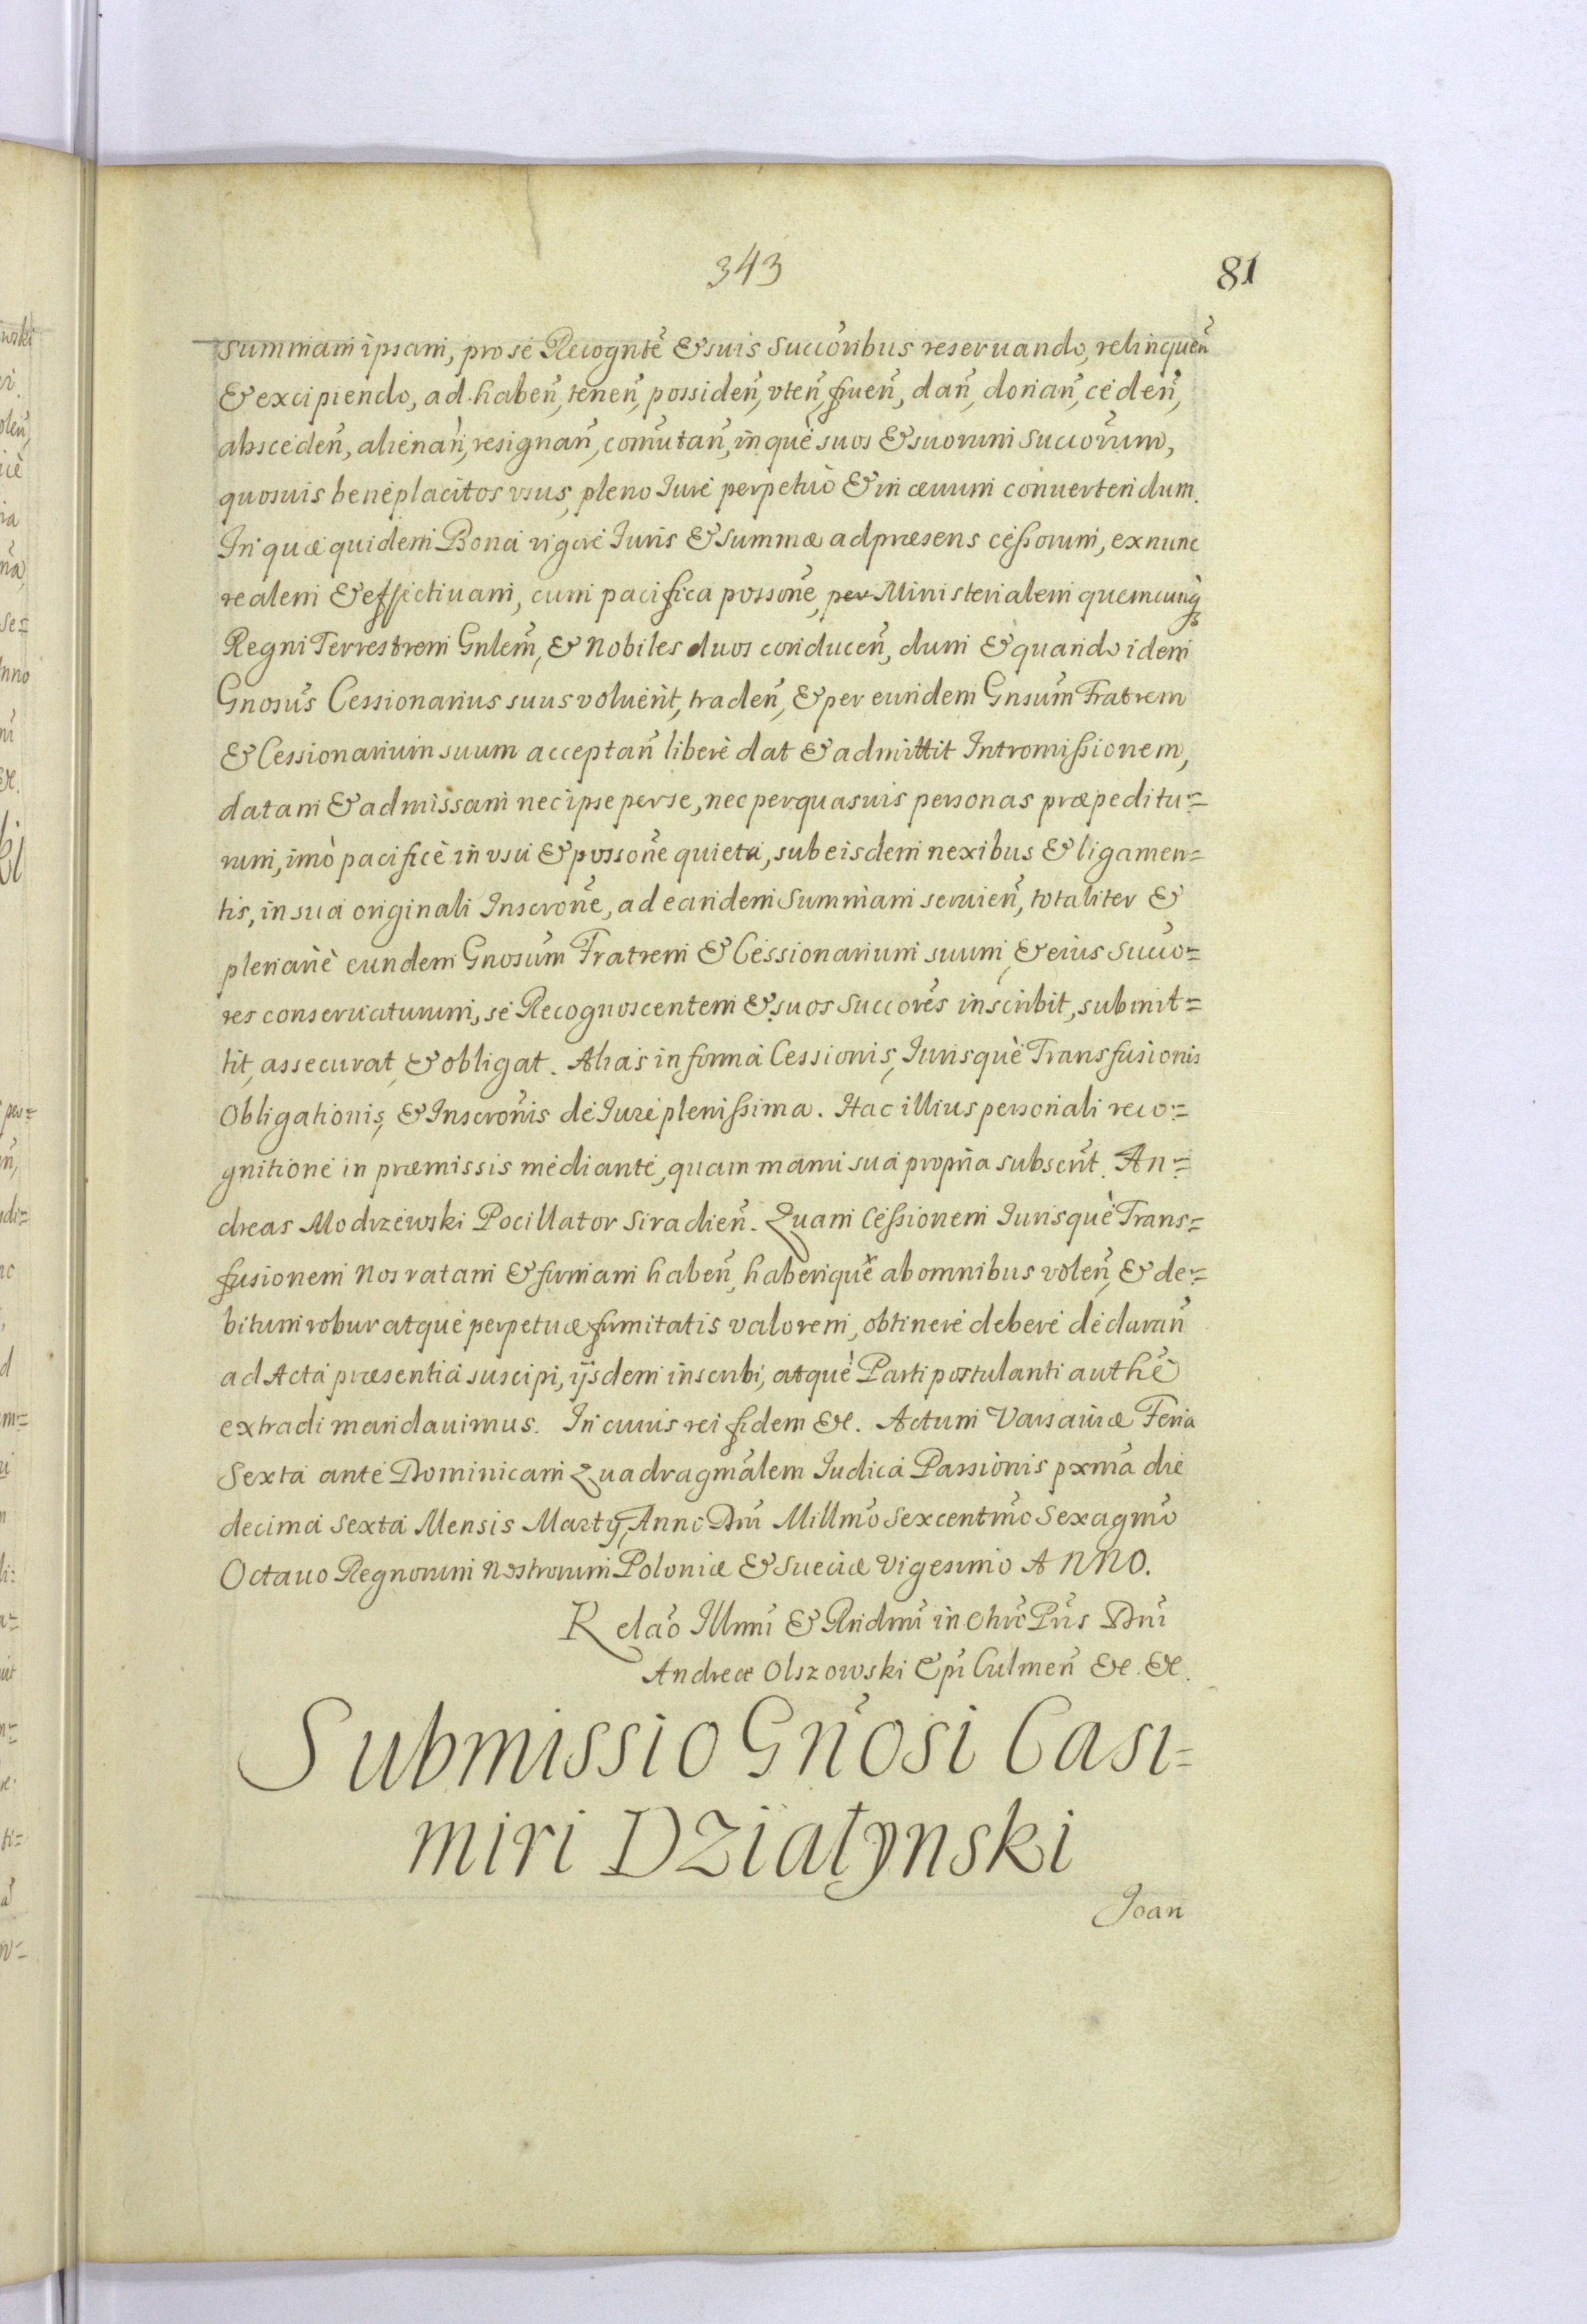 343
81
summam ipsam, pro se Recogntẽ & suis Succoribus reseruando, relinquen̄
& excipiendo, ad haben̄, tenen̄, possiden̄, vten̄, fruen̄, dan̄, donan̄, ceden̄,
absceden̄, alienan̄, resignan̄, com̄utan̄, inquè suos & suorum Succorum,
quosuis beneplacitos vsus, pleno Iure perpetuò & in æuum conuertendum.
In quæ quidem Bona vigore Iuris & Summæ ad præsens cessorum, ex nunc
realem & effectiuam, cum pacifica possone, per Ministerialem quemcunq̃
Regni Terrestrem Gnlem̃, & Nobiles duos conducen̄, dum & quando idem
Gnosus̃ Cessionarius suus voluerit, traden̄, & per eundem Gnsum̃ Fratrem
& Cessionarium suum acceptan̄ liberè dat & admittit Intromissionem,
datam & admissam nec ipse per se, nec per quasuis personas præpeditu=
rum, imò pacificè in vsu & possone quieta, sub eisdem nexibus & ligamen=
tis, in sua originali Inscrone, ad eandem Summam seruien̄, totaliter &
plenariè eundem Gnosum̃ Fratrem & Cessionarium suum, & eius Succo=
res conseruaturum, se Recognoscentem & suos Succores inscribit, submit=
tit, assecurat, & obligat. Alias in forma Cessionis, Iurisquè Transfusionis
Obligationis, & Inscronis de Iure plenissima. Hac illius personali reco=
gnitione in præmissis mediante, quam manu sua propria subscrt̃. An=
dreas Modrzewski Pocillator Siradien̄. Quam Cessionem Iurisquè Trans=
fusionem Nos ratam & firmam haben̄, haberique ab omnibus volen̄, & de=
bitum robur atque perpetuæ firmitatis valorem, obtinere debere declaran̄
ad Acta præsentia suscipi, ijsdem inscribi, atquè Parti postulanti authẽ
extradi mandauimus. In cuius rei fidem &c. Actum Varsauiæ Feria
Sexta ante Dominicam Quadragmalem̃ Iudica Passionis pxma die
decima sexta Mensis Martij, Anno Dnĩ Millmõ Sexcentmõ Sexagmõ
Octauo Regnorum Nostrorum Poloniæ & Sueciæ Vigesimo ANNO.
Relaõ Illmĩ & Rndmĩ in Chrõ Prĩs Dnĩ
Andreæ Olszowski Epĩ Culmen̄ &c. &c.
Submissio Gnõsi Casi=
miri Działynski
Joan